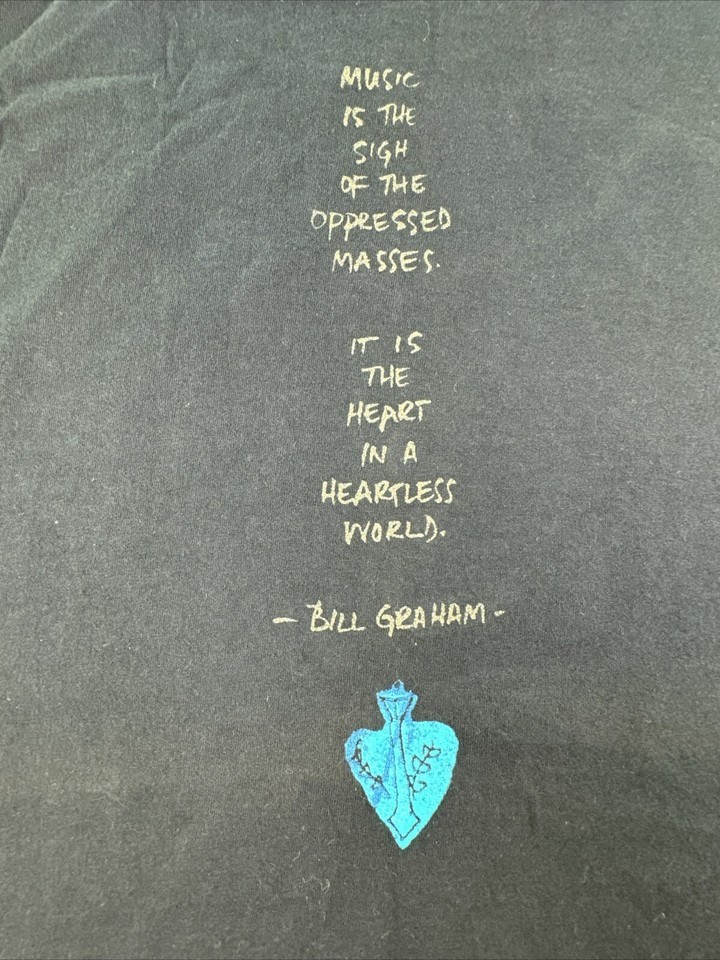 MUSIC
IS THE
SIGH
OF THE
OPPRESSED
MASSES.
IT IS
THE
HEART
IN A
HEARTLESS
WORLD.
- BILL GRAHAM -